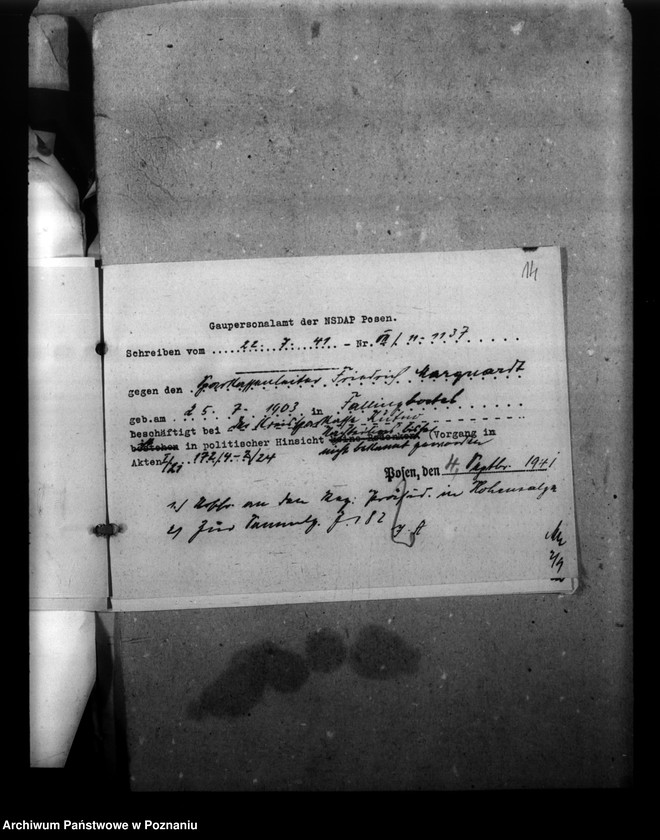 14
Gaupersonalamt der NSDAP Posen.
Schreiben vom ...22. 7. 41.. - Nr. VII/11-1137......
gegen den .Sparkassenleiter Friedrich Marquardt
geb.am ..25. 7. 1903. in .Fallingbostel
beschäftigt bei der Kreissparkasse Kutno
ist
bestehen in politischer Hinsicht keine Bedenken (Vorgang in
nicht bekannt geworden
Akten 172/4-2/24
Posen, den 4. Septbr. 1941
1.) an den Reg. Präsid. in Hohensalza
2) Zur Samml. 182